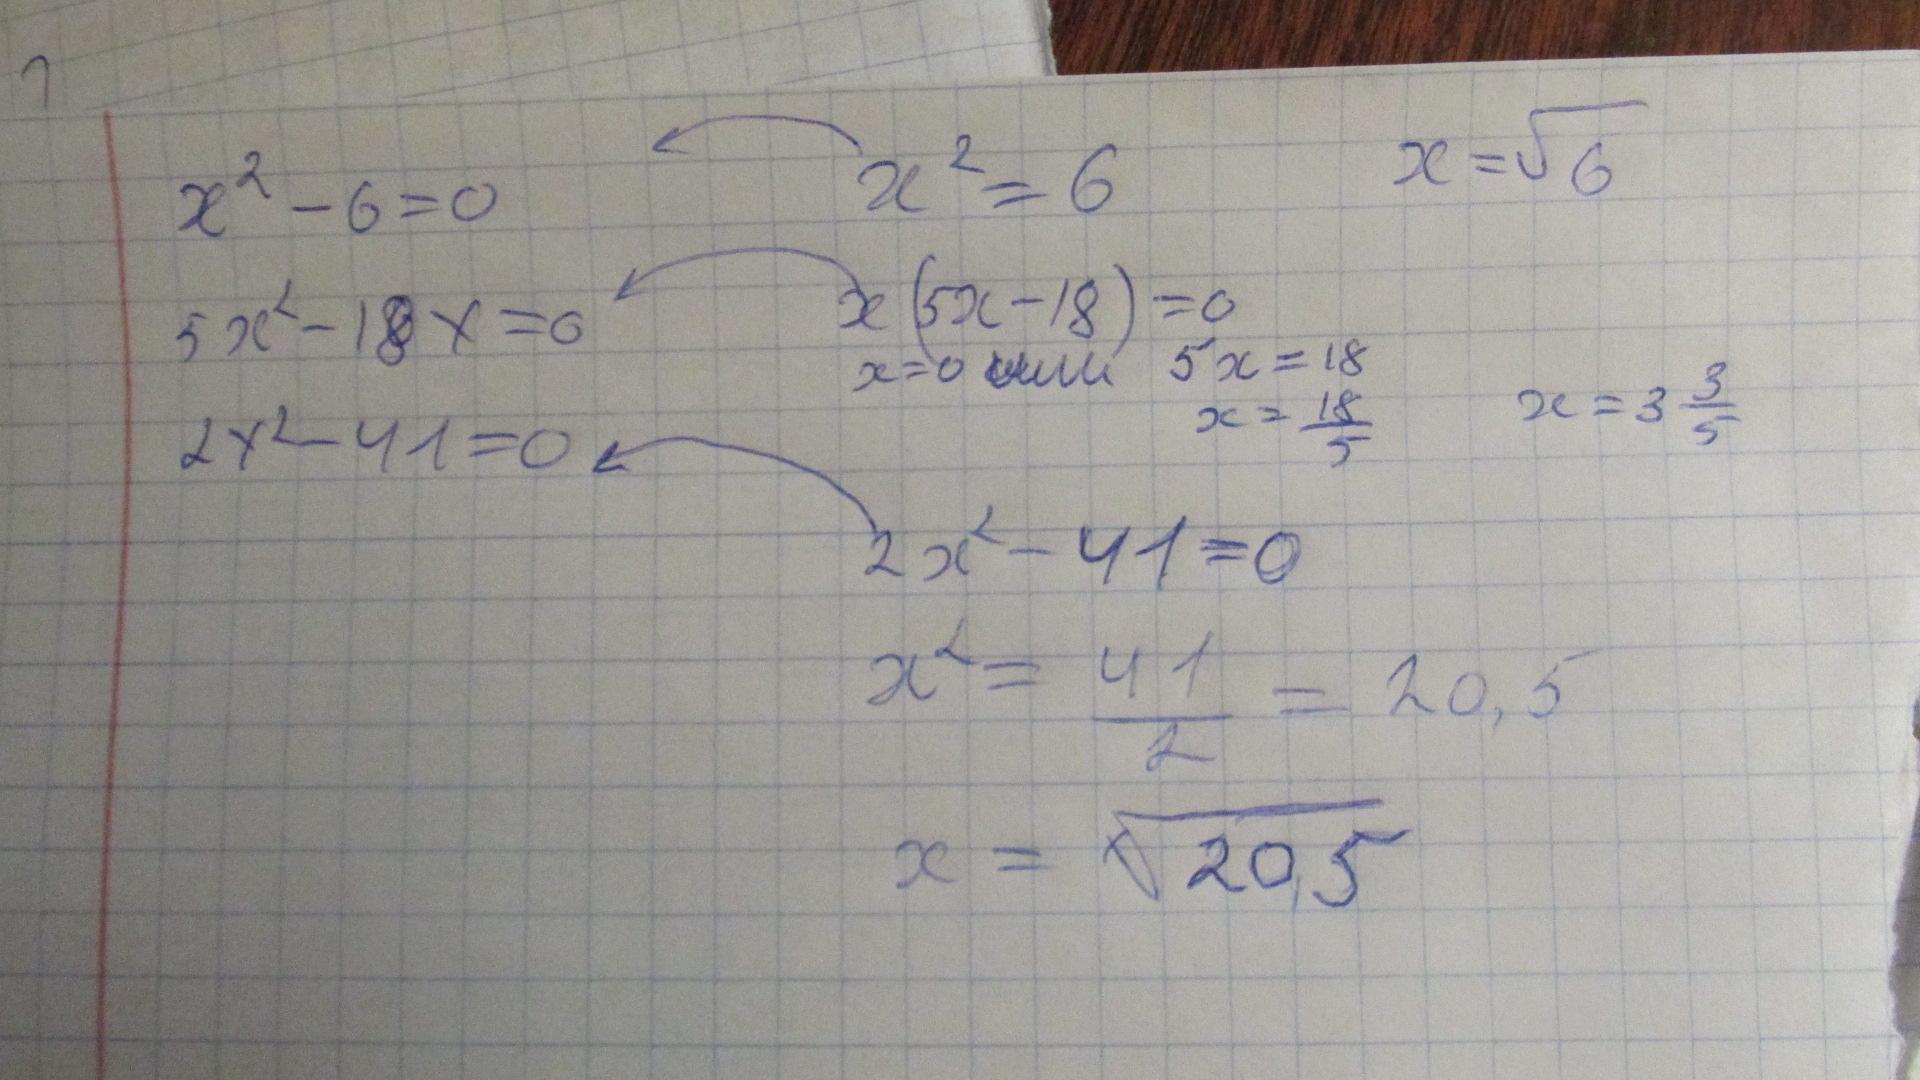 x² - 6 = 0
x² = 6
x = √6
5x² - 18x = 0
x(5x - 18) = 0
x = 0 или 5x = 18
x = 18/5
x = 3 3/5
2x² - 41 = 0
2x² - 41 = 0
x² = 41/2 = 20,5
x = √20,5